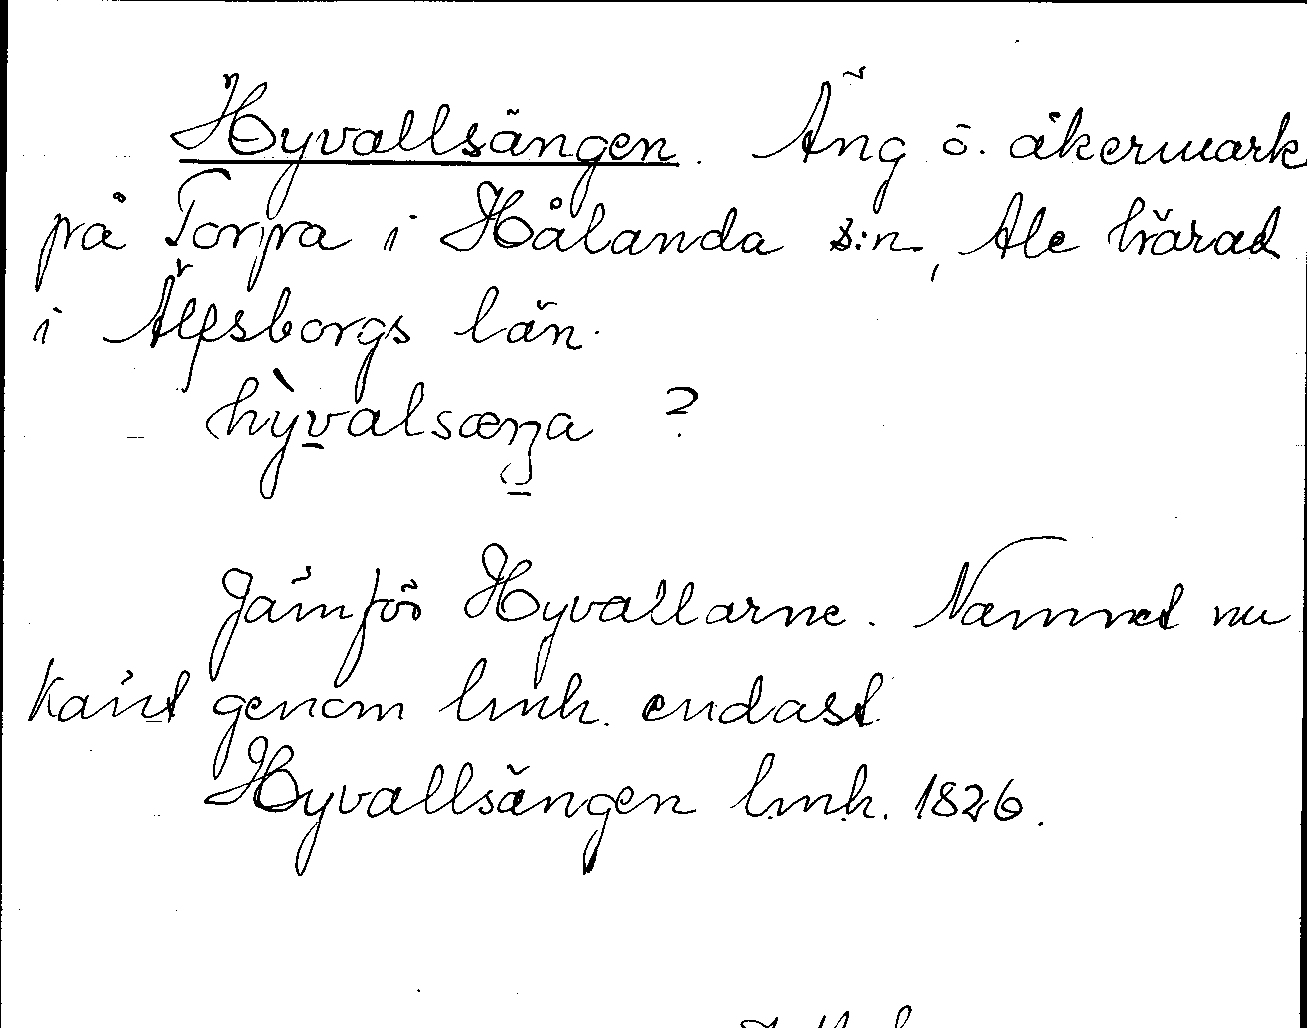 Hyvallsängen. Äng ö. åkermark
på Torpa i Hålanda s:n, Ale härad
i Älfsborgs län.
hỳvalsæŋa ?
Jämför Hyvallarne. Namnet nu
känt genom lmh. endast
Hyvallsängen lmh. 1826.